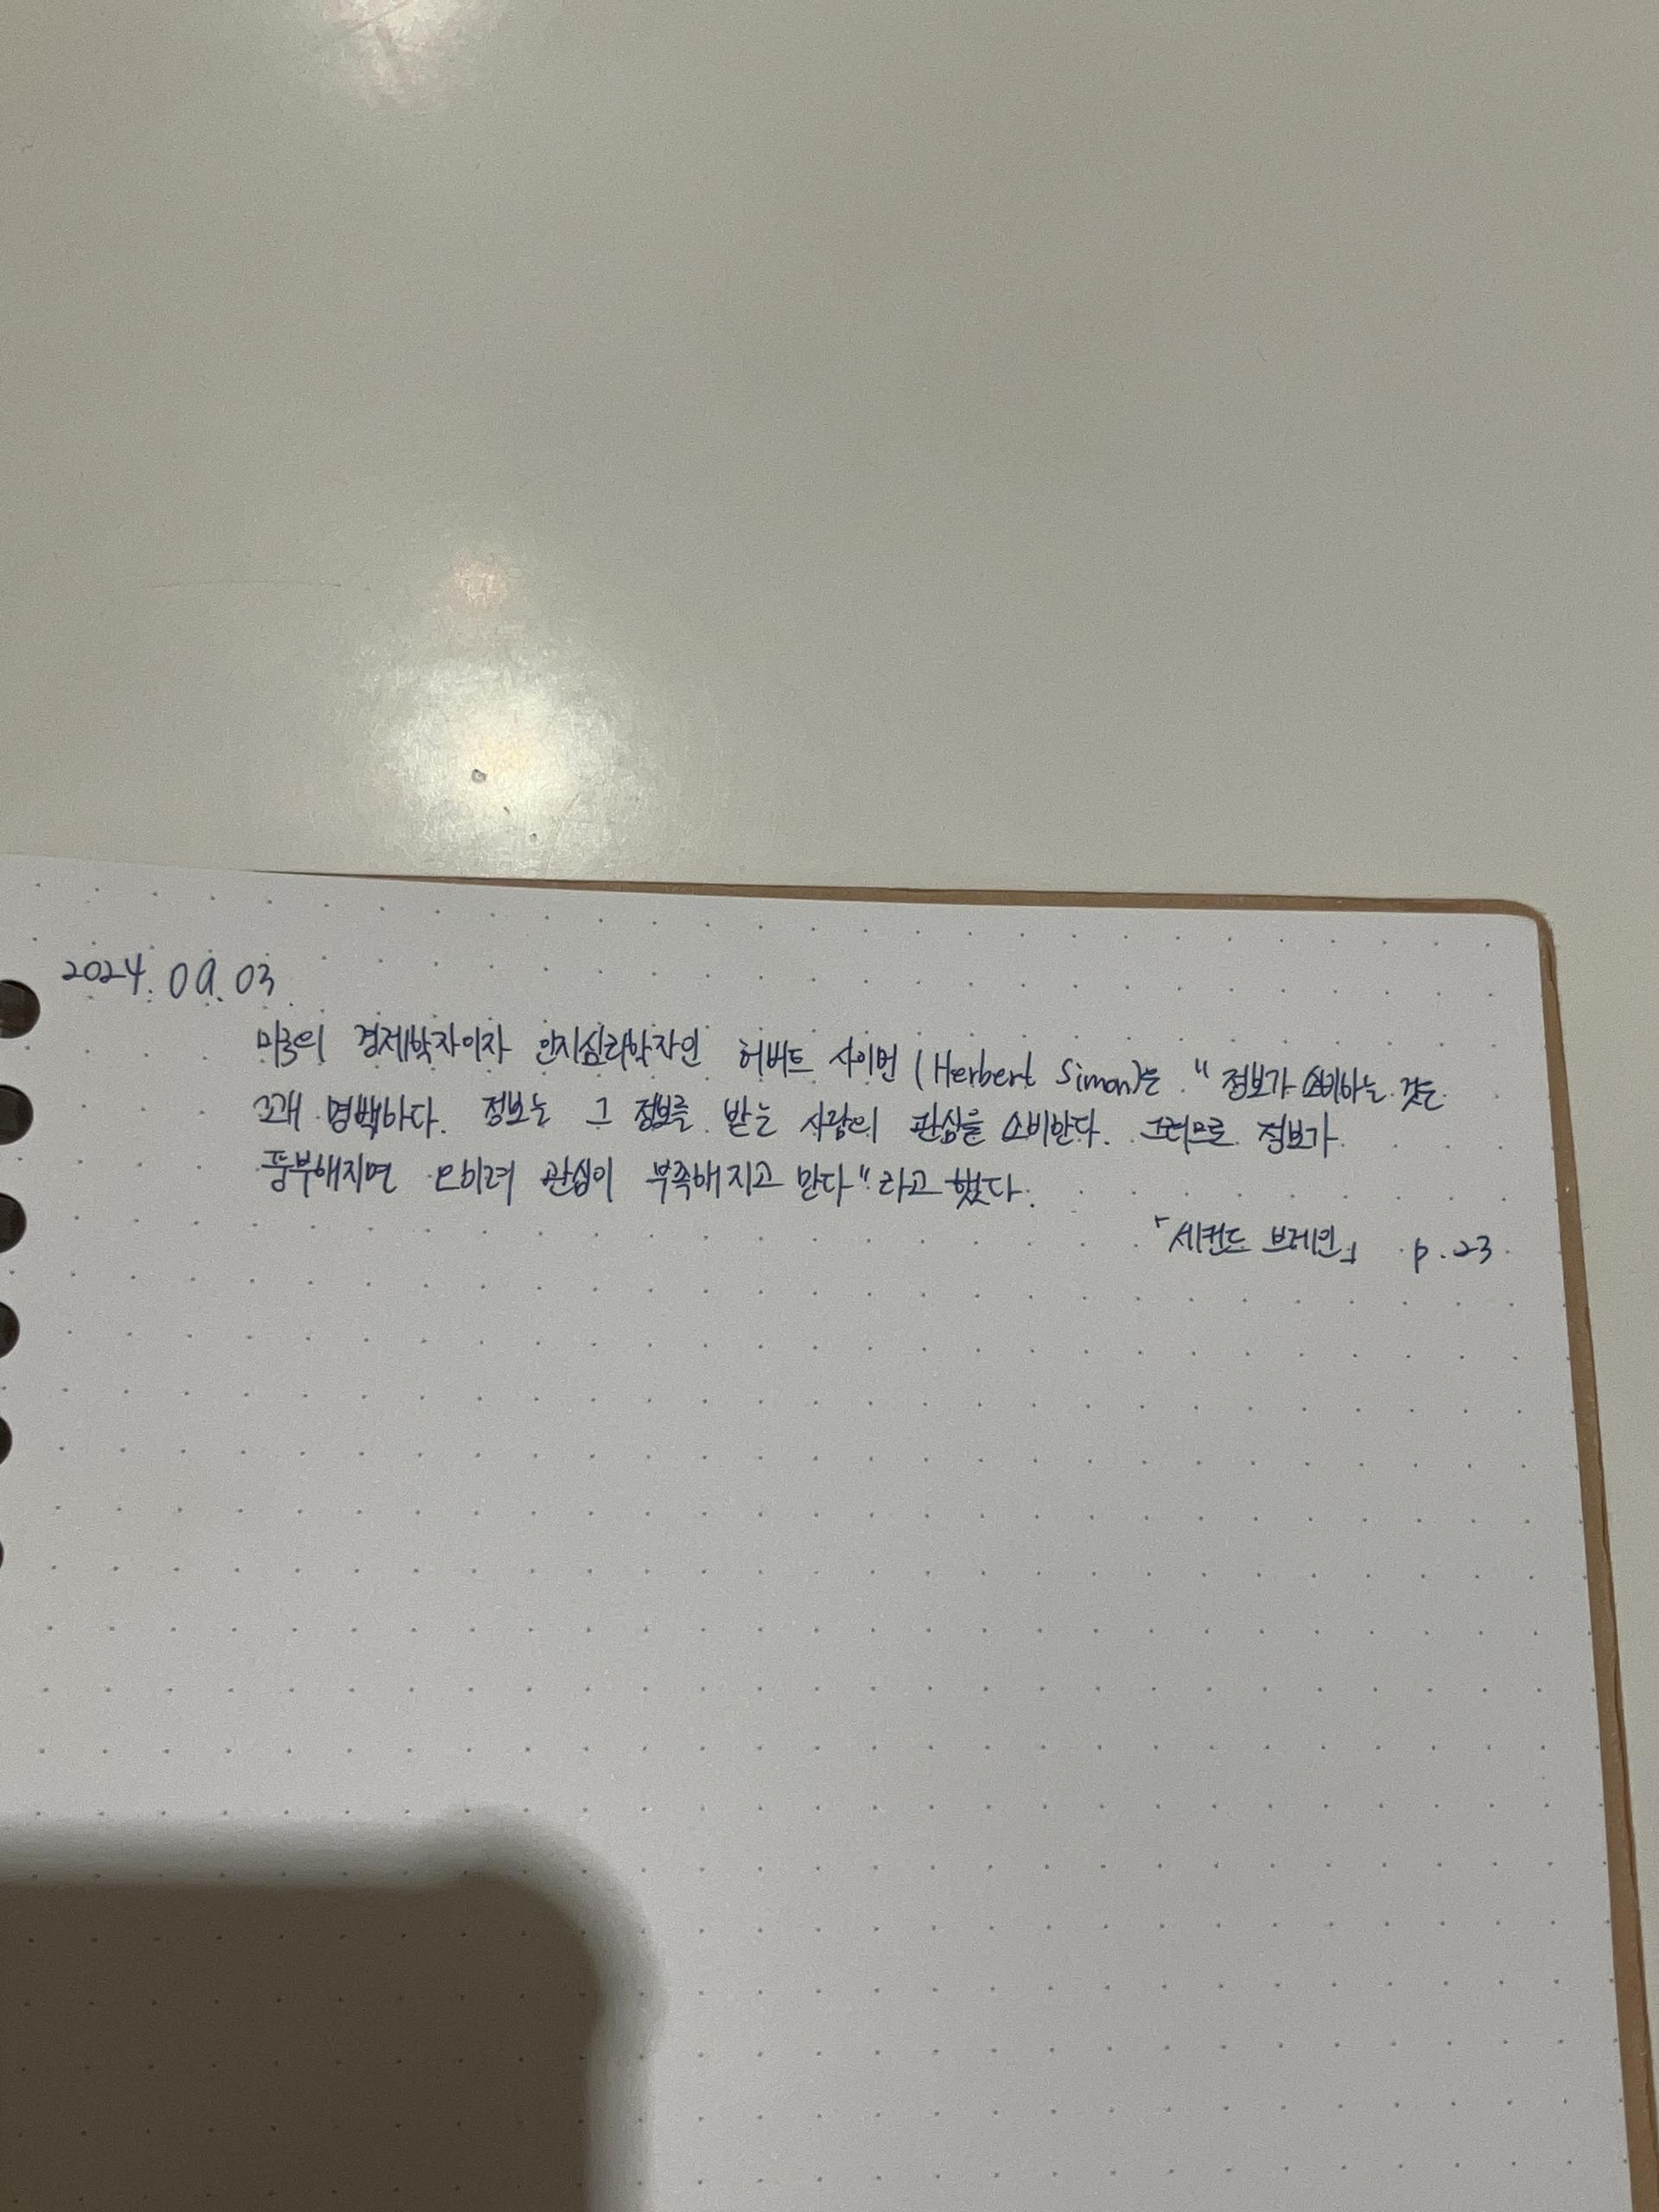 2024. 09. 03
미국의 경제학자이자 인지심리학자인 허버트 사이먼 (Herbert Simon)은 "정보가 소비하는 것은
꽤 명백하다. 정보는 그 정보를 받는 사람의 관심을 소비한다. 그러므로 정보가
풍부해지면 오히려 관심이 부족해지고 만다"라고 했다.
「세컨드 브레인」 p.23